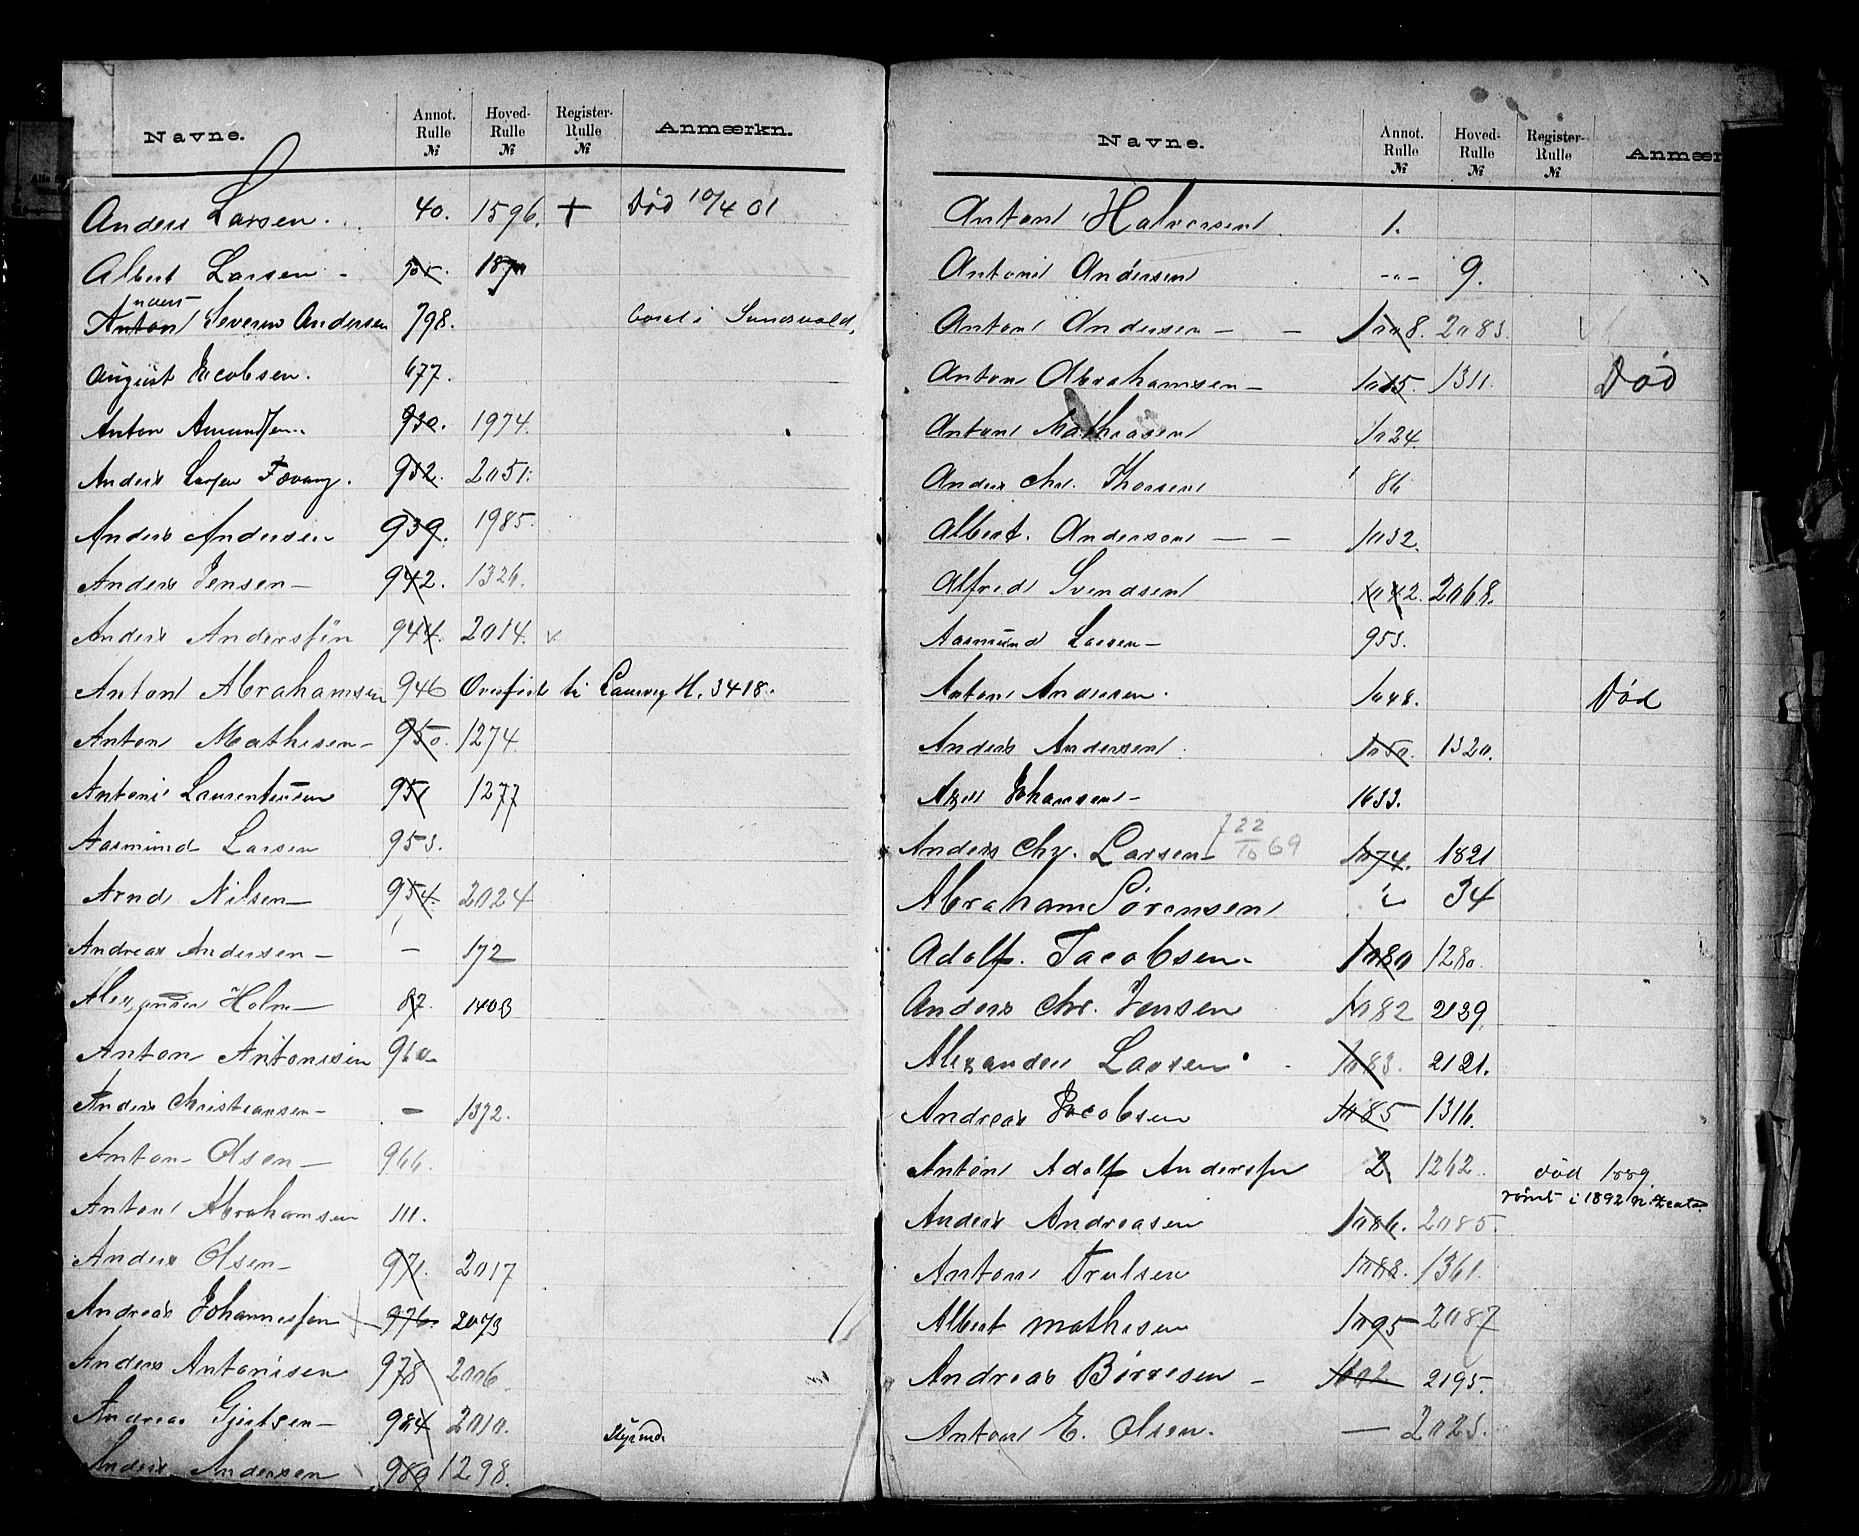 Navne. Annot. Rulle № Hoved- Rulle № Register- Rulle № Anmærkn.
Anders Larsen. 40. 1596. + Død 10/4 01
Albert Larsen - 187
Anders
Anton Severin Andersen 798. boral i Sundsvald,
August Jacobsen. 677.
Anton Amundsen. 930. 1974.
Anders Larsen Tovang. 932. 2051.
Anders Andersen 939. 1985.
Anders Jensen - 942. 1326.
Anders Andersen 944. 2014. x
Anton Abrahamsen 946 Overført til Laurvig H. 3418.
Anton Mathisen - 950. 1274.
Anton Laurentsen 951 1277
Aasmund Larsen 953.
Arnd Nilsen - 954. 2024
Andreas Andersen - - 172
Alexander Holm - 87. 1403
Anton Antonisen 960
Anders Christiansen - - 1372.
Anton Olsen - 966.
Anton Abrahamsen 111.
Anders Olsen - 971. 2017
Andreas Johannessen 976. 2073
Anders Antonisen 978 2006.
Andreas Gjertsen - 984 2010. Styrmd.
Anders Andersen 989 1298.
Navne. Annot. Rulle № Hoved- Rulle № Register- Rulle № Anmær
Anton Halvorsen 1.
Anton Andersen -"- 9.
Anton Andersen - - 1008. 2083.
Anton Abrahamsen - 1015. 1311. Død
Anton Mathiasen 1024.
Anders Chr. Thorsen 86
Albert. Andersen - - 1032.
Alfred Svendsen 1042. 2068.
Aasmund Larsen - 953.
Anton Andersen. 1048. Død
Anders Andersen. 1050. 1320.
Axel Johansen - 1633.
Anders Chr. Larsen - 22/10 69 1074. 1821
Abraham Sørensen " 34
Adolf. Jacobsen. 1080 1280.
Anders Chr. Jensen 1082 2139.
Alexander Larsen 1083. 2121.
Andreas Jacobsen 1085 1316.
Anton Adolf Andersen 2 1262. død 1889.
rømt i 1892 N.
Anders Andreasen 1086. 2085.
Anton Trulsen 1088. 1361.
Albert Mathisen 1095 2087
Andreas Børresen - 1102. 2195.
Anton E. Olsen. - 2023.